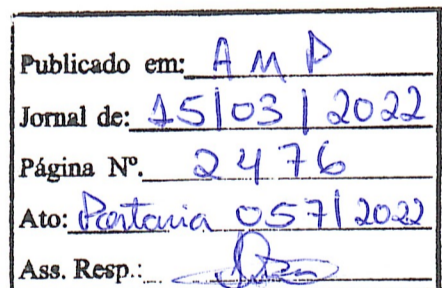 Publicado em: AMP
Jornal de: 15/03/2022
Página Nº. 2476
Ato: Portaria 057/2022
Ass. Resp.: